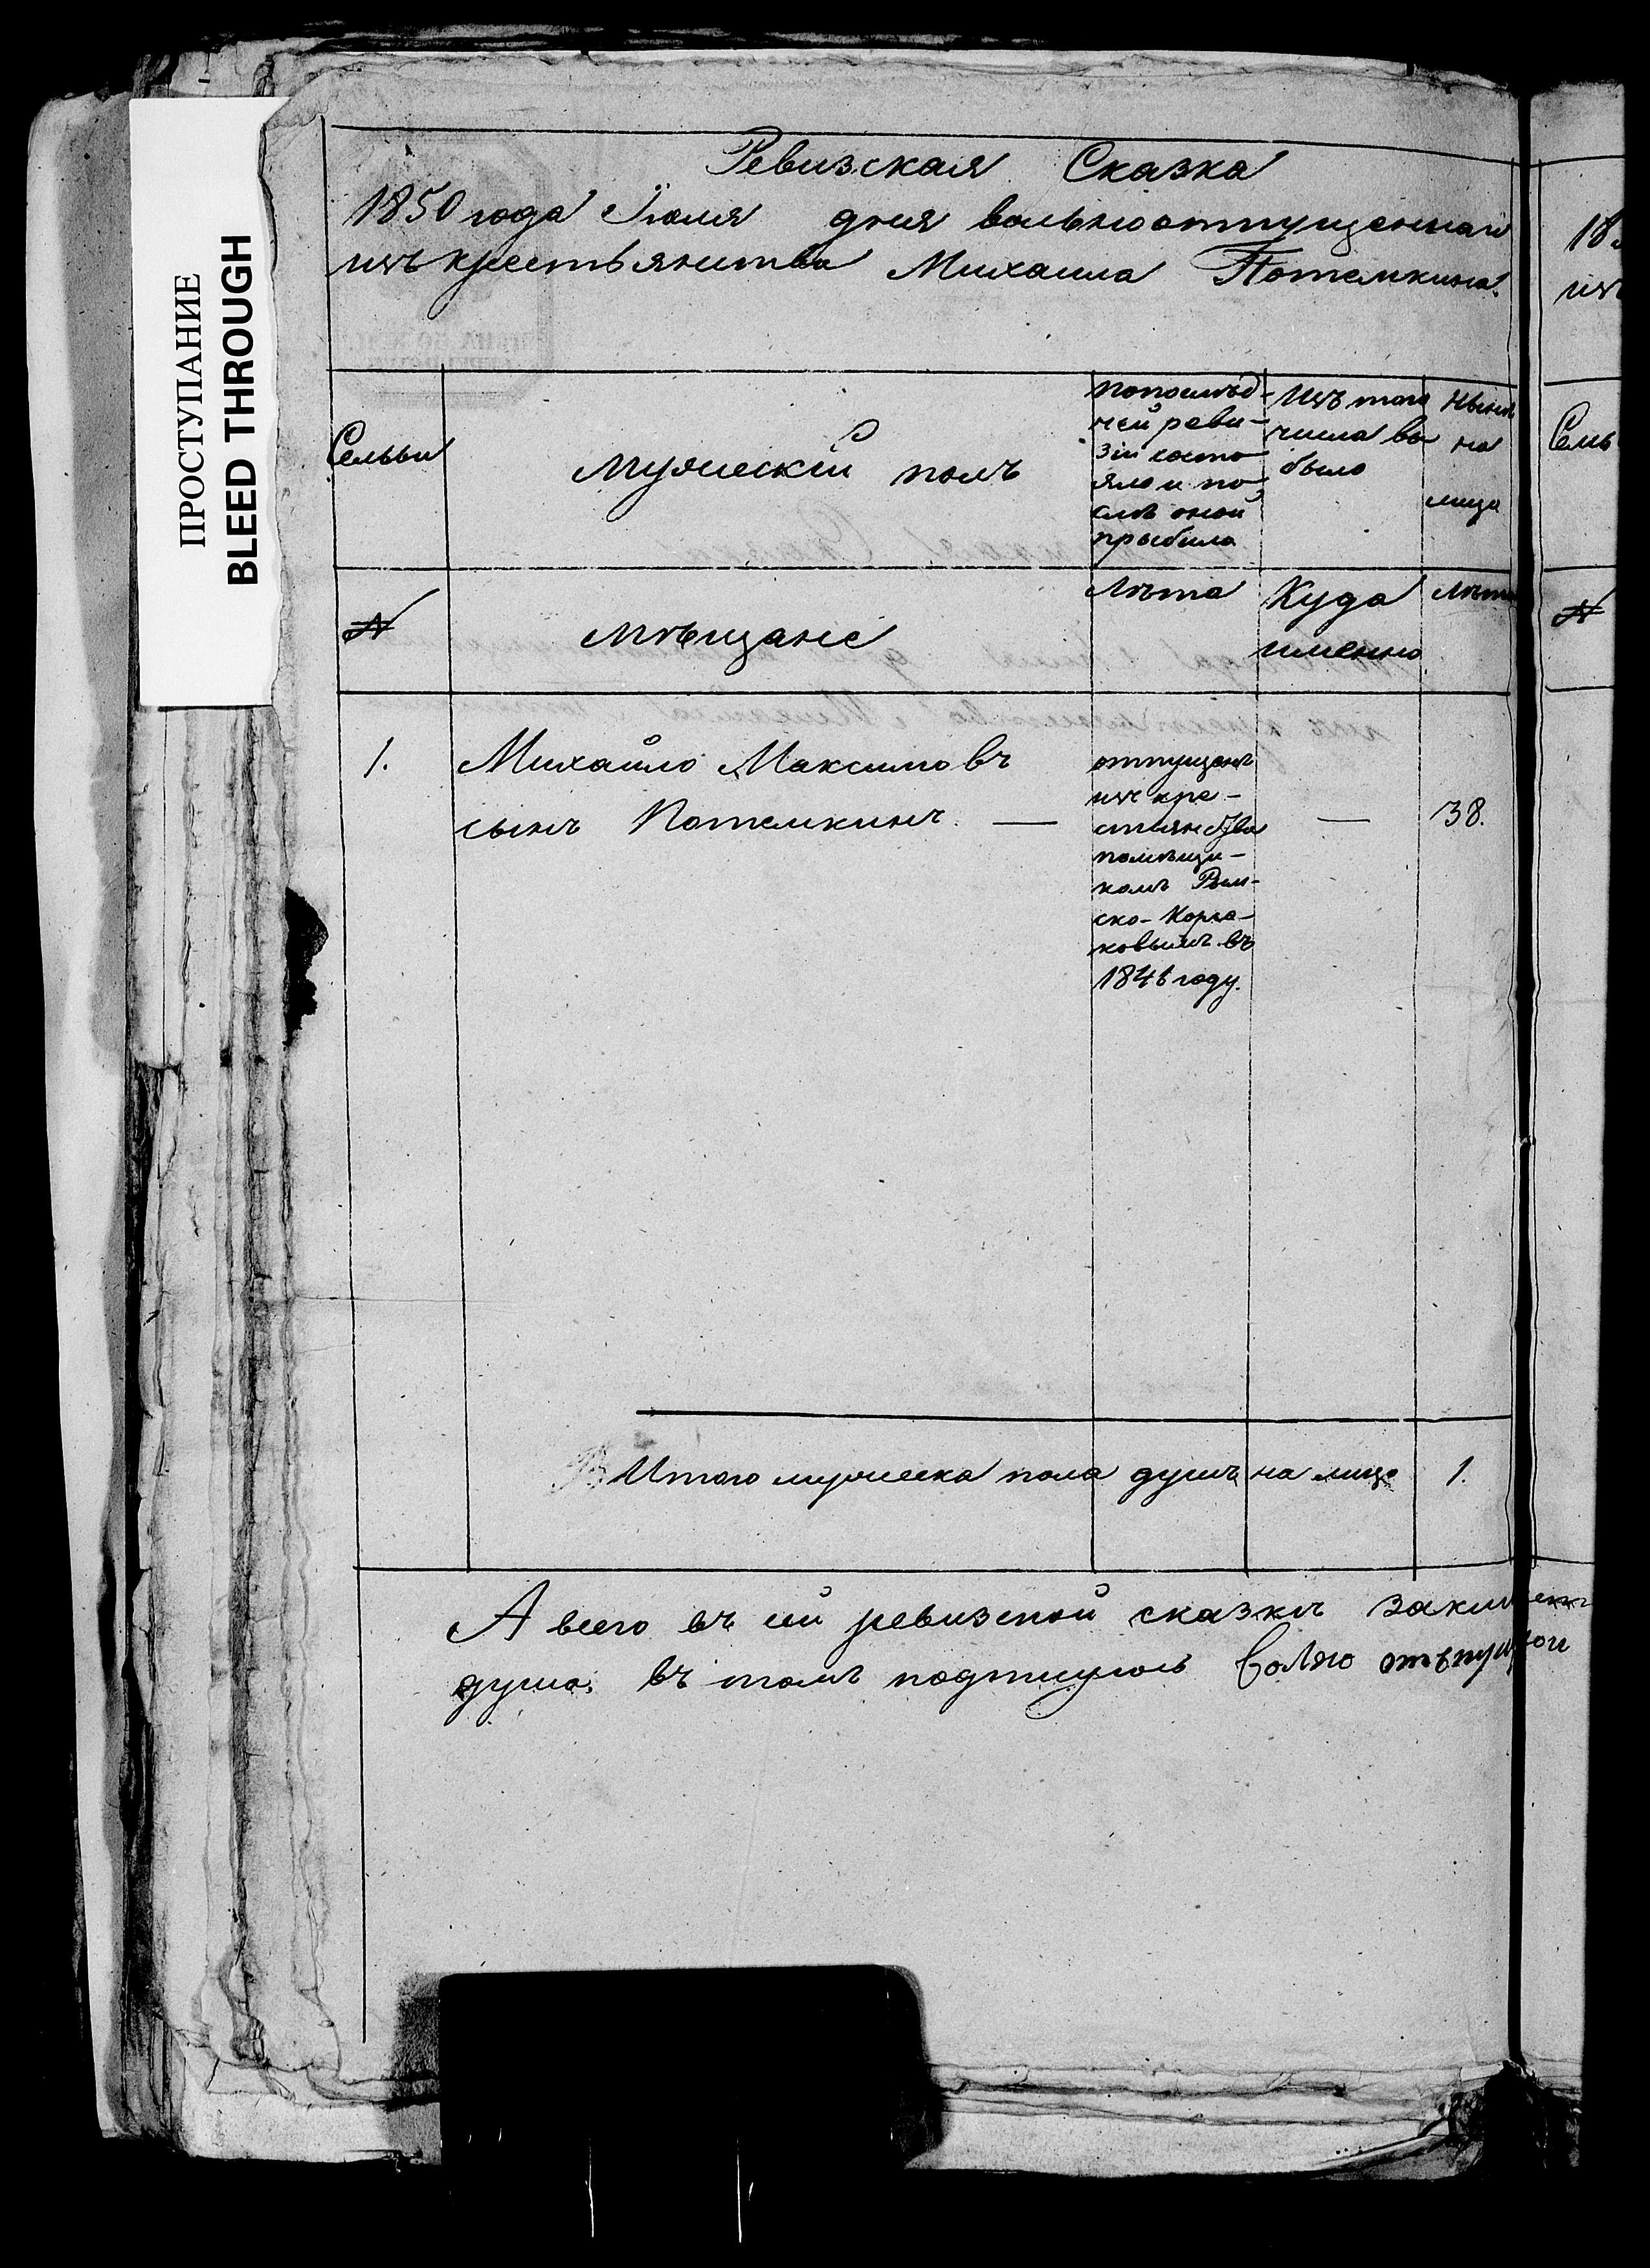 ПРОСТУПАНИЕ
BLEED THROUGH
Ревизская Сказка
1850 года Іюля дня вольноотпущеннаго
изъ крестьянитва Михаила Потемкина.
Семьи
Мужескій полъ
По послѣд-
ней реви-
зіи состо
яло и по
слѣ оной
прыбыло
Изъ того
числа вы
было
Нынѣ
на
лицо
№
Мѣщане
Лѣта
Куда
именно
Лѣта
1.
Михайло Максимовъ
сынъ Потемкинъ. —
отпущенъ
изъ кре-
стьянства
помѣщи-
комъ Рым-
ско-Корса-
ковымъ въ
1846 году.
—
38.
Итого мужеска пола душъ на лицо 1.
А всего въ сей ревизской сказкѣ
душа; въ томъ подпишуюсь волно
18
изъ
Семь
№